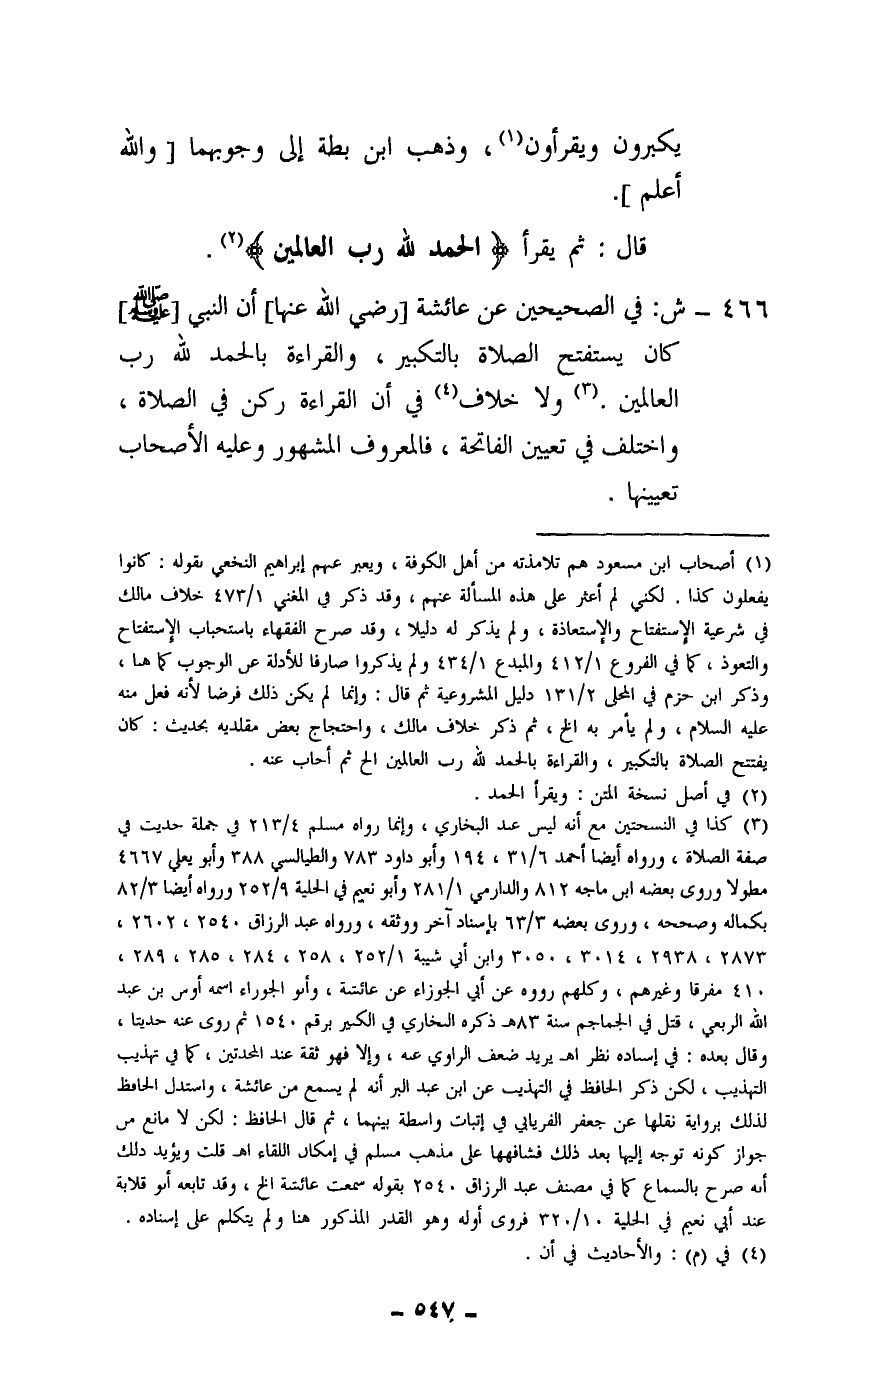 يكبرون ويقرأون(١) ، وذهب ابن بطة إلى وجوبهما [ والله
أعلم ].
قال : ثم يقرأ ﴿ الحمد لله رب العالمين ﴾(٢) .
٤٦٦ – ش: في الصحيحين عن عائشة [رضي الله عنها] أن النبي [ﷺ]
كان يستفتح الصلاة بالتكبير ، والقراءة بالحمد لله رب
العالمين .(٣) ولا خلاف(٤) في أن القراءة ركن في الصلاة ،
واختلف في تعيين الفاتحة ، فالمعروف المشهور وعليه الأصحاب
تعيينها .
(١) أصحاب ابن مسعود هم تلامذته من أهل الكوفة ، ويعبر عنهم إبراهيم النخعي بقوله : كانوا
يفعلون كذا . لكني لم أعثر على هذه المسألة عنهم ، وقد ذكر في المغني ٤٧٣/١ خلاف مالك
في شرعية الإستفتاح والإستعاذة ، ولم يذكر له دليلا ، وقد صرح الفقهاء باستحباب الإستفتاح
والتعوذ ، كما في الفروع ٤١٢/١ والمبدع ٤٣٤/١ ولم يذكروا صارفا للأدلة عن الوجوب كما هنا ،
وذكر ابن حزم في المحلى ١٣١/٢ دليل المشروعية ثم قال : وإنما لم يكن ذلك فرضا لأنه فعل منه
عليه السلام ، ولم يأمر به الخ ، ثم ذكر خلاف مالك ، واحتجاج بعض مقلديه بحديث : كان
يفتتح الصلاة بالتكبير ، والقراءة بالحمد لله رب العالمين الخ ثم أجاب عنه .
(٢) في أصل نسخة المتن : ويقرأ الحمد .
(٣) كذا في النسحتين مع أنه ليس عند البخاري ، وإنما رواه مسلم ٢١٣/٤ في جملة حديث في
صفة الصلاة ، ورواه أيضا أحمد ٣١/٦ ، ١٩٤ وأبو داود ٧٨٣ والطيالسي ٣٨٨ وأبو يعلي ٤٦٦٧
مطولا وروى بعضه ابن ماجه ٨١٢ والدارمي ٢٨١/١ وأبو نعيم في الحلية ٢٥٢/٩ ورواه أيضا ٨٢/٣
بكماله وصححه ، وروى بعضه ٦٣/٣ بإسناد آخر ووثقه ، ورواه عبد الرزاق ٢٥٤٠ ، ٢٦٠٢ ،
٢٨٧٣ ، ٢٩٣٨ ، ٣٠١٤ ، ٣٠٥٠ وابن أبي شيبة ٢٥٢/١ ، ٢٥٨ ، ٢٨٤ ، ٢٨٥ ، ٢٨٩ ،
٤١٠ مفرقا وغيرهم ، وكلهم رووه عن أبي الجوزاء عن عائشة ، وأبو الجوراء اسمه أوس بن عبد
الله الربعي ، قتل في الجماجم سنة ٨٣هـ ذكره البخاري في الكبير برقم ١٥٤٠ ثم روى عنه حديثا ،
وقال بعده : في إسناده نظر اهـ يريد ضعف الراوي عنه ، وإلا فهو ثقة عند المحدثين ، كما في تهذيب
التهذيب ، لكن ذكر الحافظ في التهذيب عن ابن عبد البر أنه لم يسمع من عائشة ، واستدل الحافظ
لذلك برواية نقلها عن جعفر الفريابي في إثبات واسطة بينهما ، ثم قال الحافظ : لكن لا مانع من
جواز كونه توجه إليها بعد ذلك فشافهها على مذهب مسلم في إمكان اللقاء اهـ قلت ويؤيد ذلك
أنه صرح بالسماع كما في مصنف عبد الرزاق ٢٥٤٠ بقوله سمعت عائشة الخ ، وقد تابعه أبو قلابة
عند أبي نعيم في الحلية ٣٢٠/١٠ فروى أوله وهو القدر المذكور هنا ولم يتكلم على إسناده .
(٤) في (م) : والأحاديث في أن .
– ٥٤٧ –